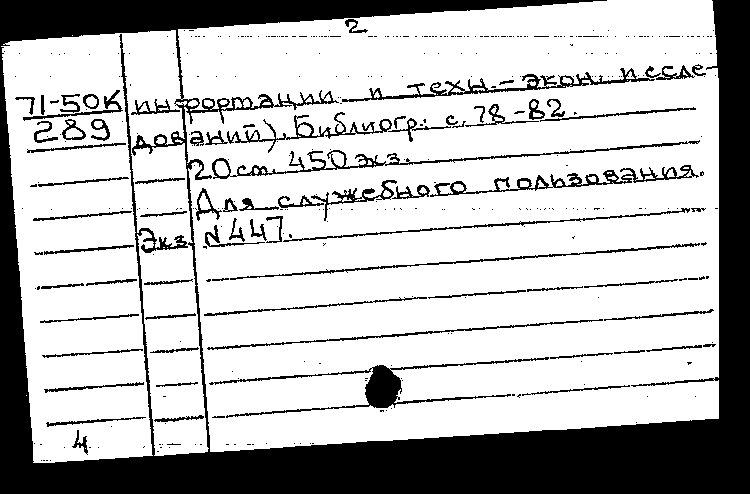 2
71-50К информации и техн.-экон. иссле-
289 дований). Библиогр.: с. 78-82.
20 см. 450 экз.
Для служебного пользования.
Экз. №447.
4